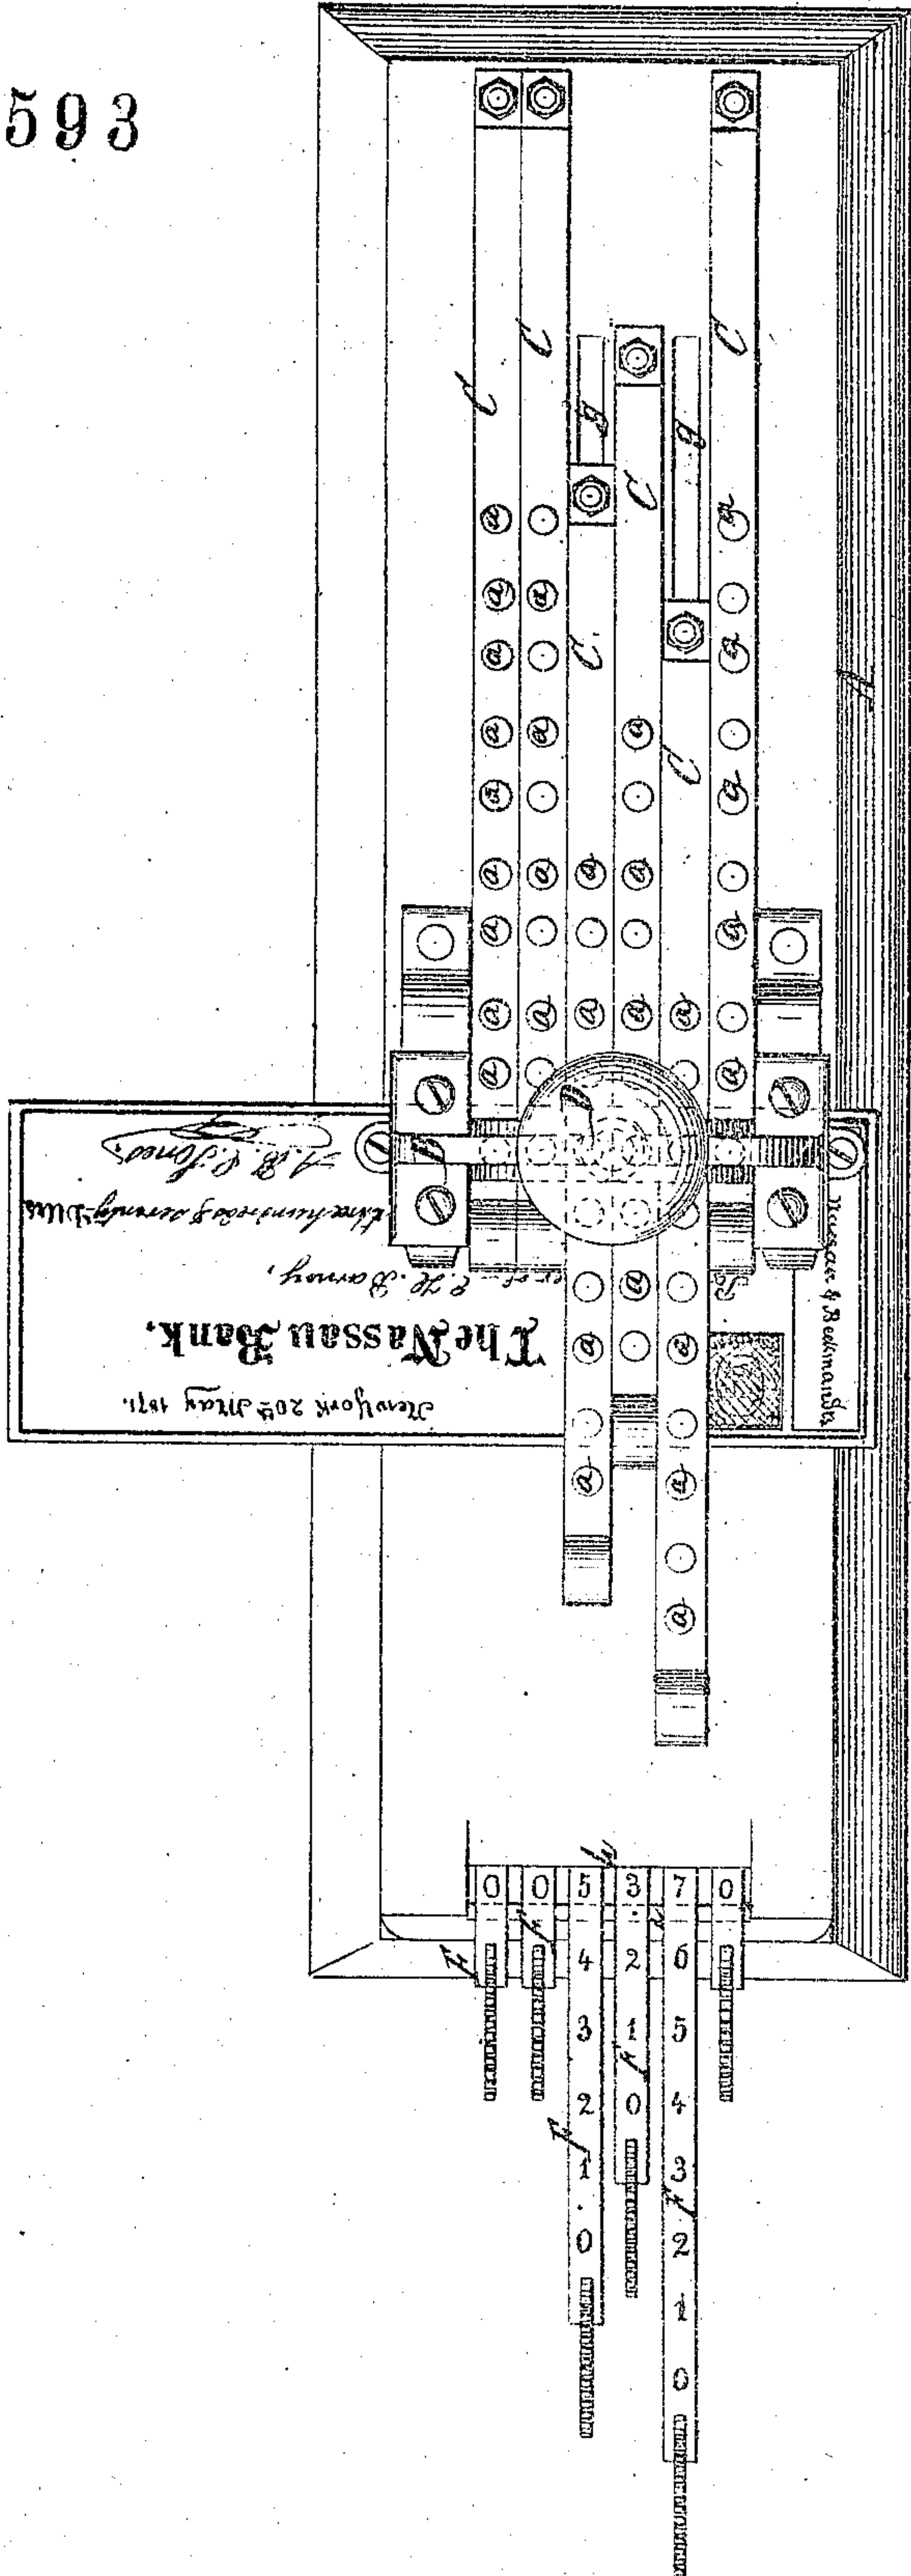 593
C C C
g C g
a a
a a
a C. a
a a a C
a a
a a a a
a a
a a a a a
a a
D
New York 20th May 1871.
The Nassau Bank.
E. H. Barney,
three hundred & seventy Dlls
A. B. C. Jones.
Nassau & Beekman Sts
D
a
a a
a a
a
A
h
0 0 5 3 7 0
4 2 6
3 1 5
2 0 4
1 3
0 2
1
0
F F F F F